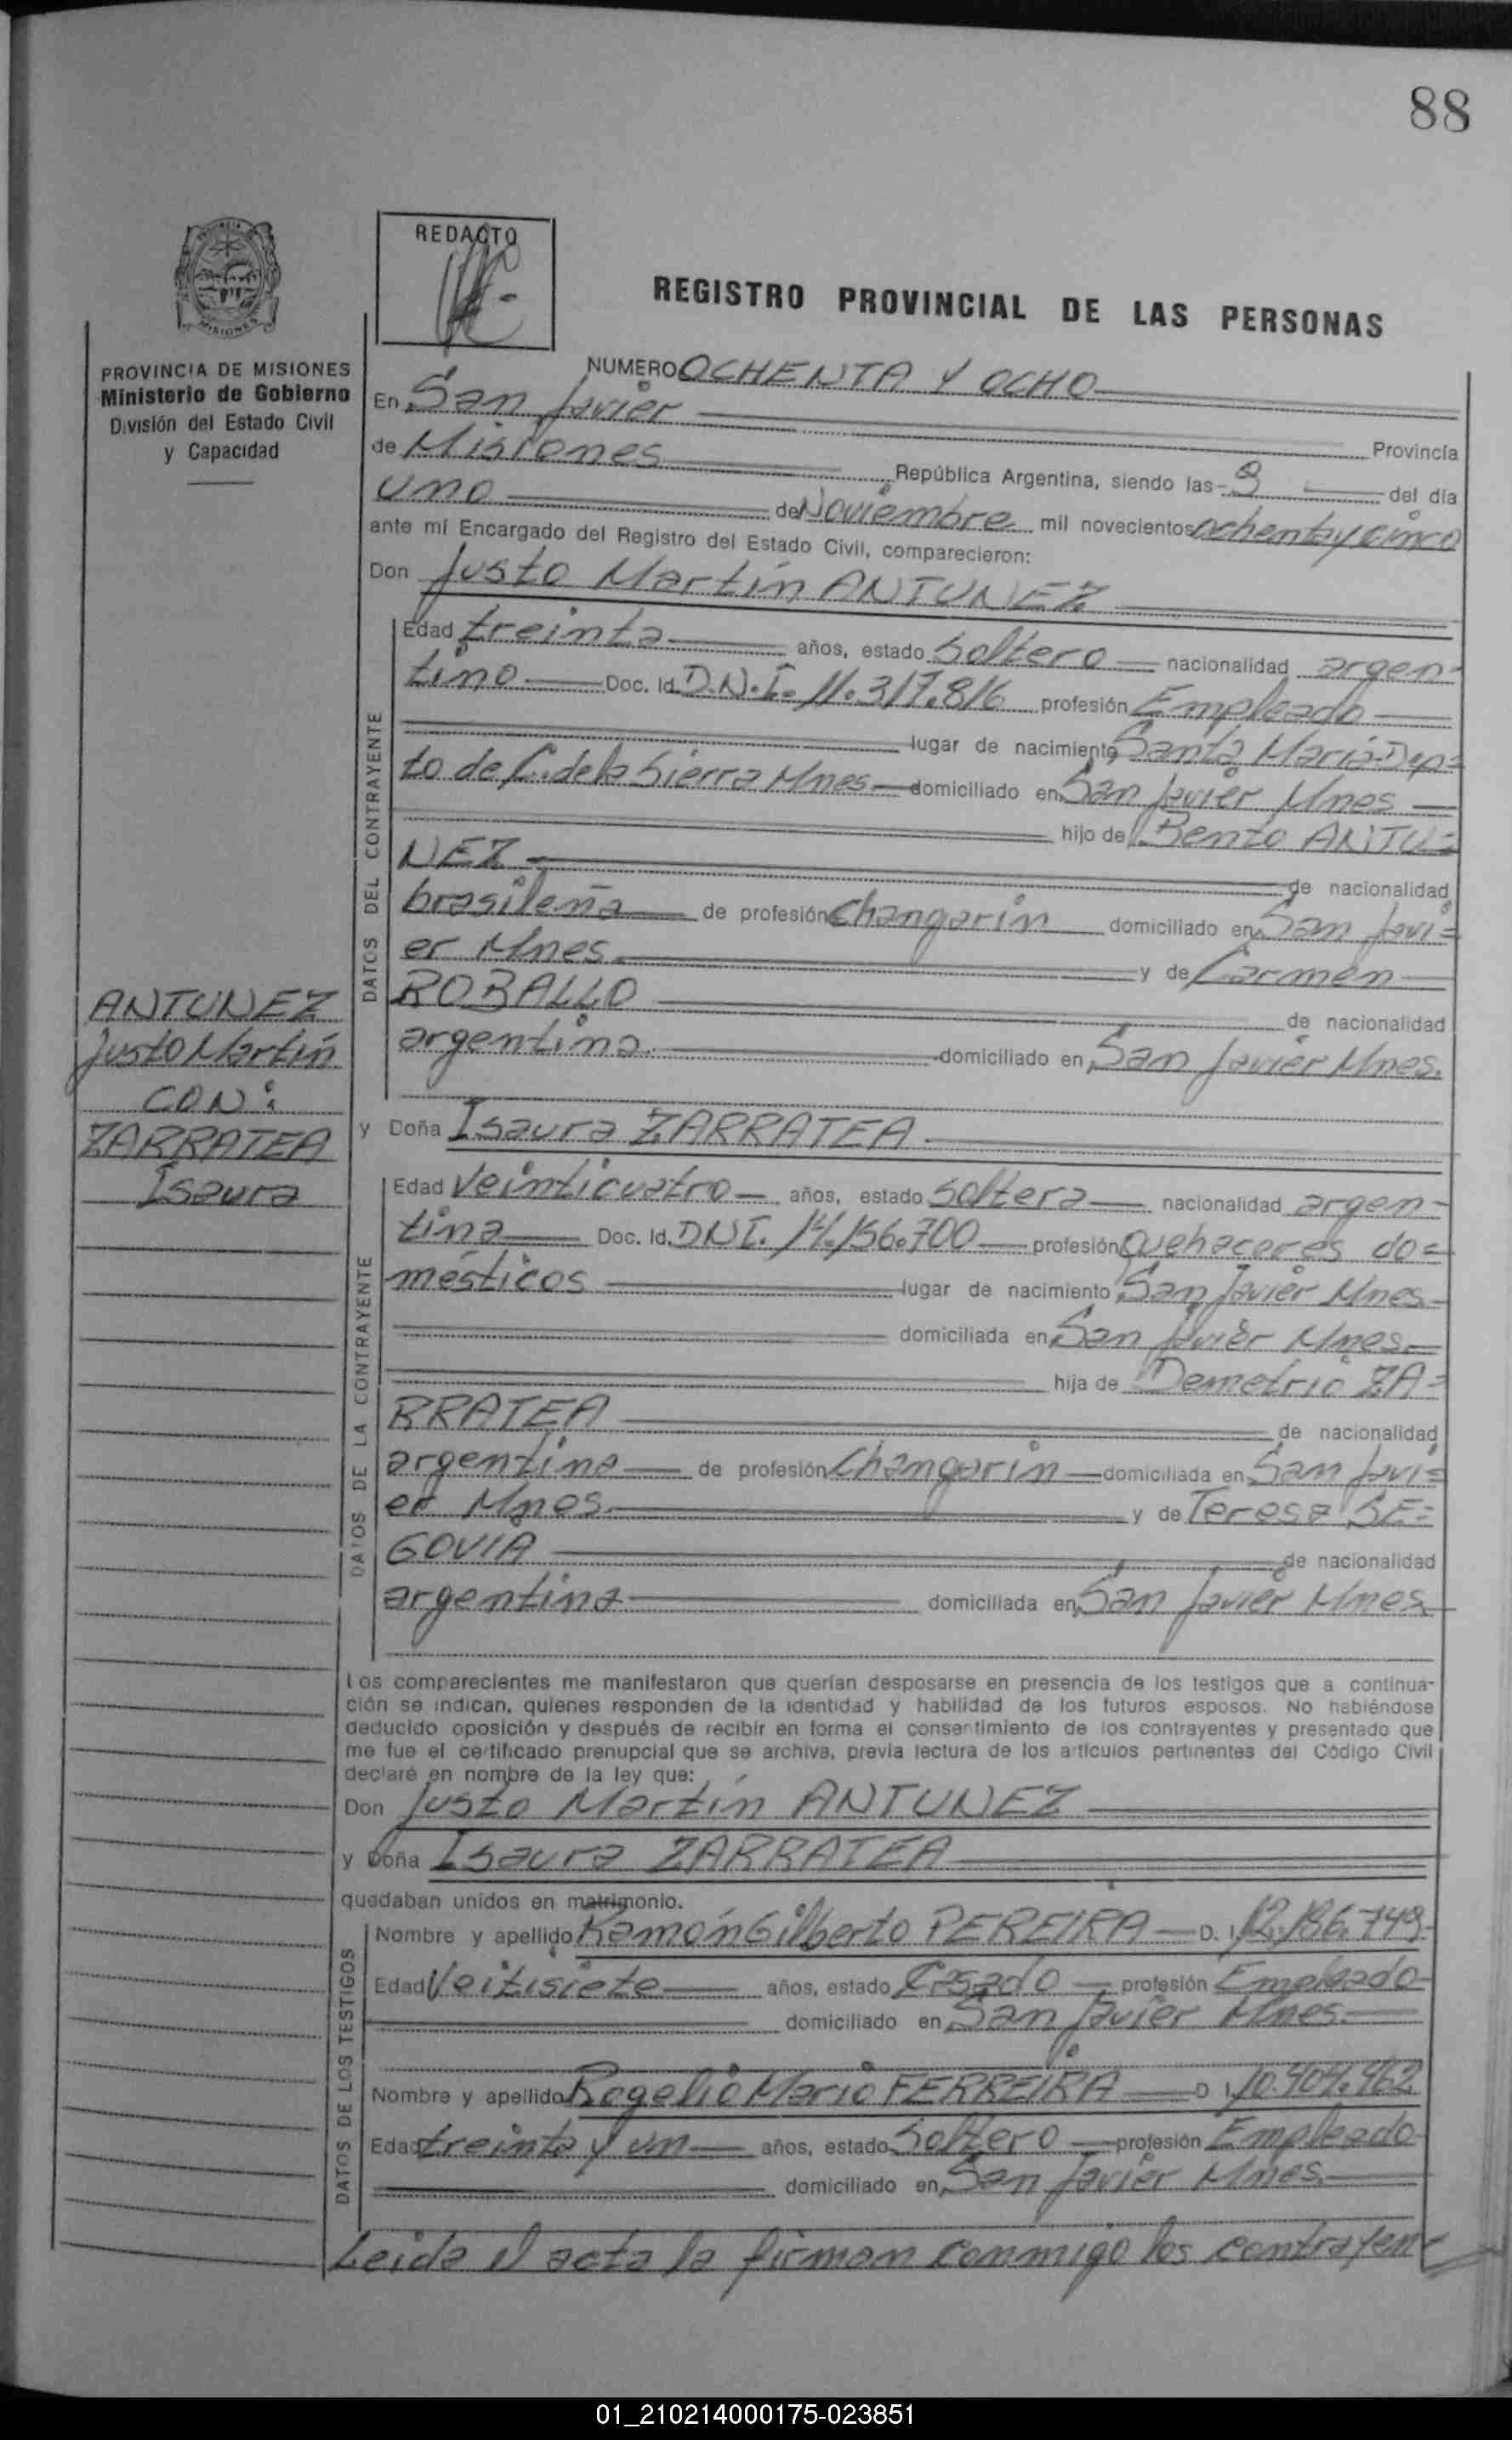 88
REDACTO
REGISTRO PROVINCIAL DE LAS PERSONAS
MISIONES
PROVINCIA DE MISIONES
Ministerio de Gobierno
División del Estado Civil
y Capacidad
NUMERO OCHENTA Y OCHO
En San Javier
Provincia
de Misiones República Argentina, siendo las 9 del día
uno de Noviembre mil novecientos ochenta y cinco
ante mí Encargado del Registro del Estado Civil, comparecieron:
Don Justo Martín ANTUNEZ
DATOS DEL CONTRAYENTE
Edad treinta años, estado Soltero nacionalidad argen-
tino Doc. Id. D.N.I. 11.317.816 profesión Empleado
lugar de nacimiento Santa María-Dep=
to de C. de la Sierra Mnes domiciliado en San Javier Mnes
hijo de Bento ANTU=
NEZ de nacionalidad
brasileña de profesión Changarín domiciliado en San Javi=
er Mnes. y de Carmen
ROBALLO de nacionalidad
argentina. domiciliado en San Javier Mnes.
ANTUNEZ
Justo Martín
CON:
ZARRATEA
Isaura
y Doña Isaura ZARRATEA
DATOS DE LA CONTRAYENTE
Edad Veinticuatro años, estado Soltera nacionalidad argen-
tina Doc. Id. DNI. 14.156.700 profesión Quehaceres do=
mésticos lugar de nacimiento San Javier Mnes
domiciliada en San Javier Mnes.
hija de Demetrio ZA=
RRATEA de nacionalidad
argentina de profesión Changarín domiciliada en San Javi=
er Mnes. y de Teresa SE=
GOVIA de nacionalidad
argentina domiciliada en San Javier Mnes
Los comparecientes me manifestaron que querían desposarse en presencia de los testigos que a continua-
ción se indican, quienes responden de la identidad y habilidad de los futuros esposos. No habiéndose
deducido oposición y después de recibir en forma el consentimiento de los contrayentes y presentado que
me fue el certificado prenupcial que se archiva, previa lectura de los artículos pertinentes del Código Civil
declaré en nombre de la ley que:
Don Justo Martín ANTUNEZ
y Doña Isaura ZARRATEA
quedaban unidos en matrimonio.
DATOS DE LOS TESTIGOS
Nombre y apellido Ramón Gilberto PEREIRA D. I. 12.186.749
Edad Veitisiete años, estado Casado profesión Empleado
domiciliado en San Javier Mnes.
Nombre y apellido Rogelio Mario FERREIRA D I. 10.404.462
Edad treinta y un años, estado Soltero profesión Empleado
domiciliado en San Javier Mnes
Leida el acta la firman conmigo los contrayen
01_210214000175-023851